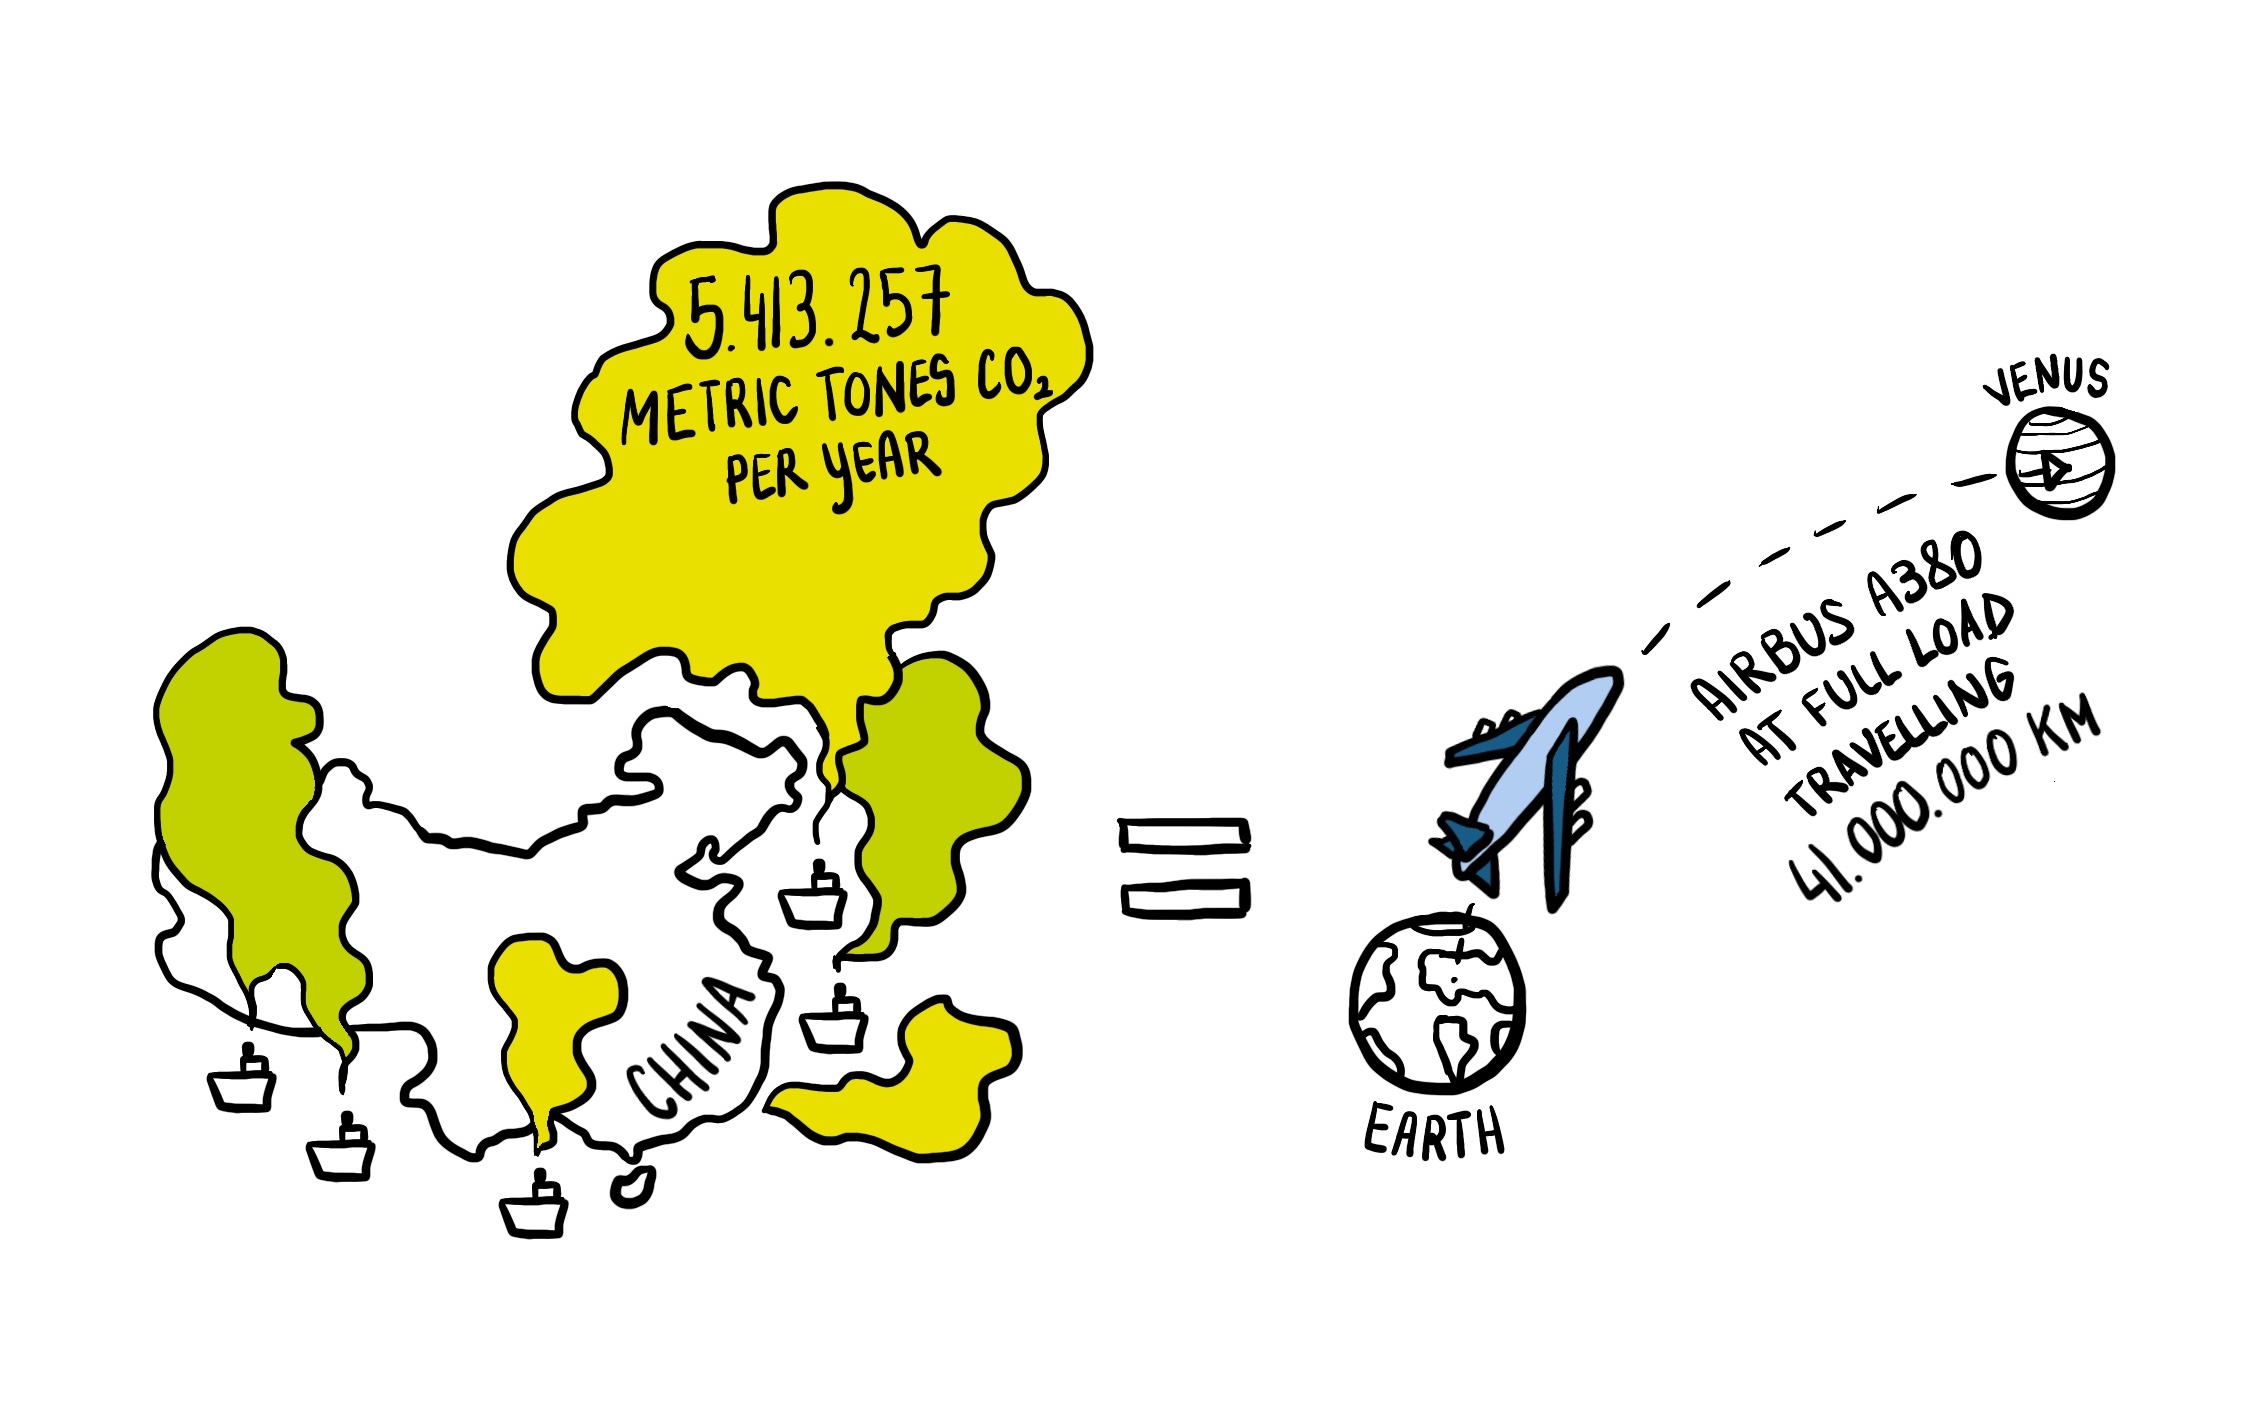 5.413.257
METRIC TONES CO₂
PER YEAR
CHINA
VENUS
AIRBUS A380
AT FULL LOAD
TRAVELLING
41.000.000 KM
EARTH